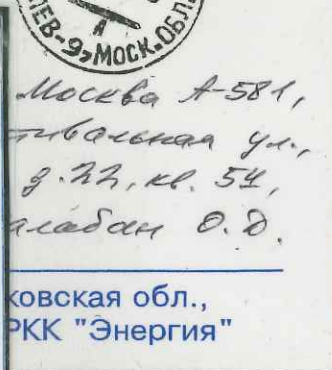 ЛЕВ-9, МОСК. ОБЛ.
Москва А-581,
тивальная ул.,
д. 22, кв. 54,
алабан О. Д.
ковская обл.,
РКК "Энергия"